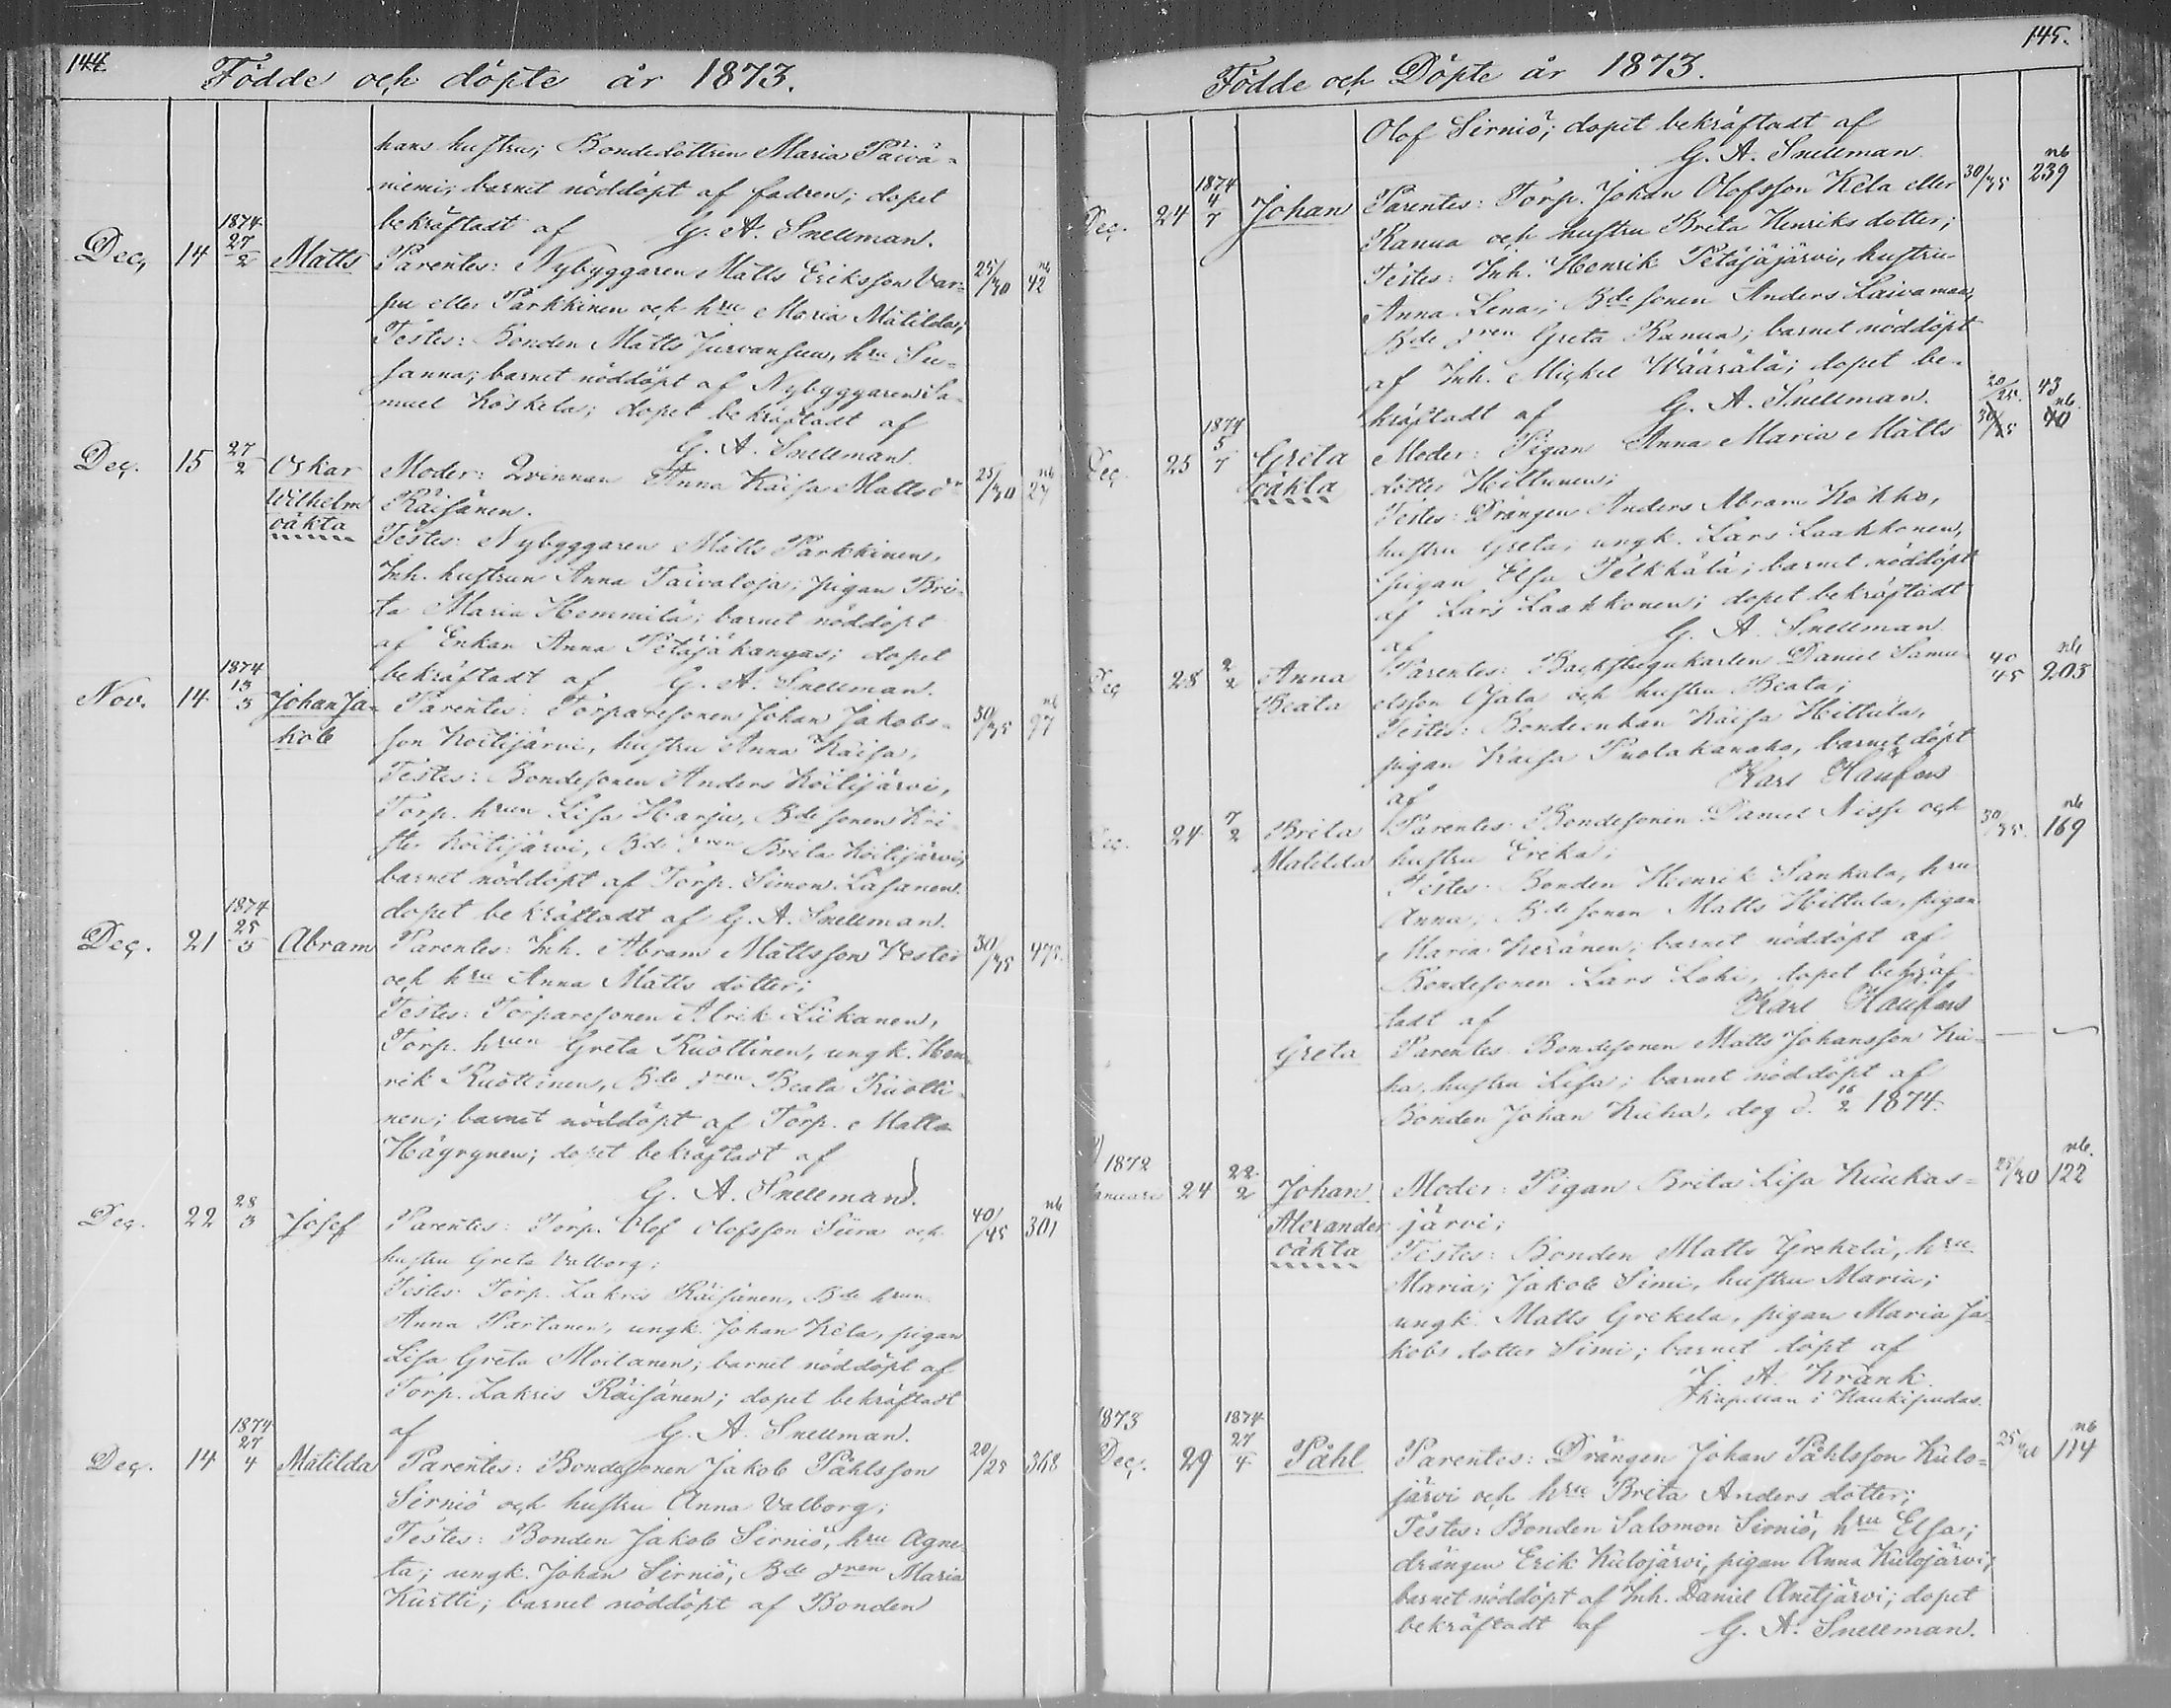 144
Födde och döpte år 1873.
hans hustru; Bondedöttren Maria Päivä-
niemi; barnet nöddöpt af fadren; dopet
bekräftadt af G. A. Snellman.
Dec, 14 1874 27/2 Matts Parentes: Nybyggaren Matts Eriksson Var- 25/30 nb 42
pu eller Parkkinen och hru Maria Matilda;
Testes: Bonden Matts Jurvansuu, hru Su-
sanna; barnet nöddöpt af Nybyggaren Sa-
muel Koskela; dopet bekräftadt af
G. A. Snellman.
Dec. 15 27/2 Oskar Moder: Qvinnan Anna Kaisa Mattsd 25/30 nb 27
Wilhelm Räisänen.
oäkta Testes: Nybyggaren Matts Parkkinen,
Inh. hustrun Anna Taivaloja, pigan Bri-
ta Maria Hemmilä; barnet nöddöpt
af Enkan Anna Petäjäkangas; dopet
bekräftadt af G. A. Snellman.
Nov. 14 1874 13/3 Johan Ja- Parentes: Torparesonen Johan Jakobs- 30/35 nb 97
kob son Koitijärvi, hustru Anna Kaisa,
Testes: Bondesonen Anders Koitijärvi,
Torp. hrun Lisa Harju, Bde sonen Kri-
ster Koitijärvi, Bde dren Brita Koitijärvi,
barnet nöddöpt af Torp. Simon Lasanen.
dopet bekräftadt af G. A. Snellman.
Dec. 21 1874 25/3 Abram Parentes: Inh. Abram Mattsson Vester 30/35 475.
och hru Anna Matts dotter;
Testes: Torparesonen Alrik Liikanen,
Torp. hrun Greta Ruottinen, ungk. Hen-
rik Ruottinen, Bde dren Beata Ruotti-
nen; barnet nöddöpt af Torp. Matts
Häyrynen; dopet bekräftadt af
G. A. Snellman.
Dec. 22 28/3 Josef Parentes: Torp. Olof Olofsson Siira och 40/45 nb 301
hustru Greta Valborg;
Testes: Torp. Zakris Räisänen, Bde hrun
Anna Partanen, ungk. Johan Kela, pigan
Lisa Greta Moilanen; barnet nöddöpt af
Torp. Zakris Räisänen; dopet bekräftadt
af G. A. Snellman.
Dec. 14 1874 27/4 Matilda Parentes: Bondesonen Jakob Påhlsson 20/25 368
Sirniö och hustru Anna Valborg;
Testes: Bonden Jakob Sirniö, hru Agne-
ta; ungk. Johan Sirniö, Bde dren Maria
Kurtti; barnet nöddöpt af Bonden
145.
Födde och Döpte år 1873.
Olof Sirniö; dopet bekräftadt af
G. A. Snellman.
Dec. 24 1874 4/7 Johan Parentes: Torp. Johan Olofsson Kela eller 30/35 nb 239
Ranua och hustru Brita Henriks dotter;
Testes: Inh. Henrik Petäjäjärvi, hustru
Anna Lena; Bde sonen Anders Laivamaa,
Bde dren Greta Ranua; barnet nöddöpt
af Inh. Mickel Määrälä; dopet be-
kräftadt af G. A. Snellman. 20/25. 43
Dec. 25 1874 5/7 Greta Moder: Pigan Anna Maria Matts nb.
oäkta dotter Hiltunen;
Testes: Drängen Anders Abram Kokko,
hustru Greta; ungk. Lars Laakkonen,
pigan Elsa Pelkkälä; barnet nöddöpt
af Lars Laakkonen; dopet bekräftadt
af G. A. Snellman
Dec 28 2/2 Anna Parentes: Backstugukarlen Daniel Samu- 40/45 nb 203
Beata elsson Ojala och hustru Beata;
Testes: Bondeenkan Kaisa Hiltula,
pigan Kaisa Puolakanaho, barnet döpt
af Karl
Dec. 24 7/2 Brita Parentes: Bondesonen Daniel Nisse och 30/35. nb 169
Matilda hustru Erika;
Testes: Bonden Henrik Sankala, hru
Anna; Bde sonen Matts Hiltula, pigan
Maria Keränen; barnet nöddöpt af
Bondesonen Lars Lohi, dopet bekräf-
tadt af Karl
Greta Parentes: Bondesonen Matts Johansson Ku-
ha, hustru Lisa; barnet nöddöpt af
Bonden Johan Kuha, dog d. 16/2 1874.
1872
Januari 24 22/2 Johan Moder: Pigan Brita Lisa Kuukas- 25/30 nb. 122
Alexander järvi;
oäkta Testes: Bonden Matts Grekelä, hru
Maria; Jakob Simi, hustru Maria;
ungk. Matts Grekela, pigan Maria Ja-
kobs dotter Simi; barnet döpt af
J. A. Krank.
Kapellan i Haukipudas.
1873
Dec. 29 1874 27/4 Påhl Parentes: Drängen Johan Påhlsson Kulo- 25/30 nb 114
järvi och hru Brita Anders dotter;
Testes: Bonden Salomon Sirniö, hru Elsa;
drängen Erik Kulojärvi, pigan Anna Kulojärvi;
barnet nöddöpt af Inh. Daniel Anetjärvi; dopet
bekräftadt af G. A. Snellman.